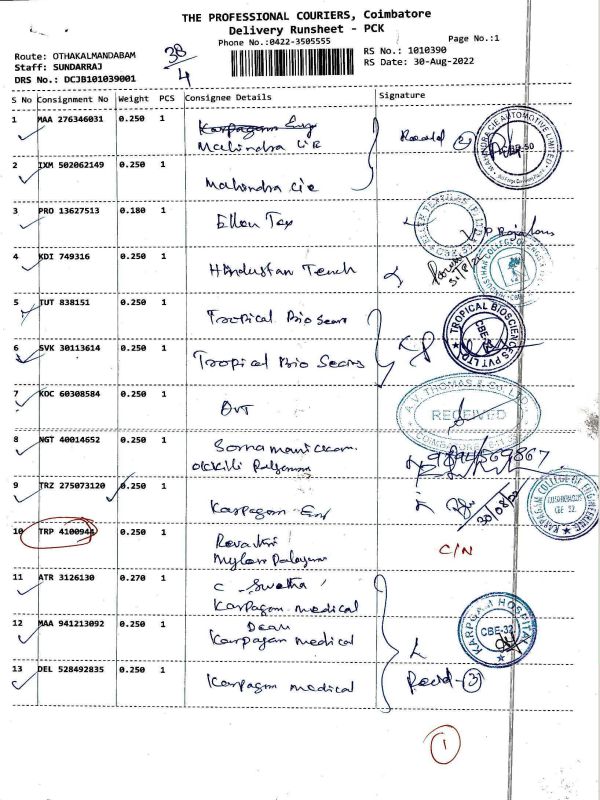 THE PROFESSIONAL COURIERS, Coimbatore
Delivery Runsheet - PCK
Phone No.:0422-3505555
Page No.:1
Route: OTHAKALMANDABAM
38/4
RS No.: 1010390
Staff: SUNDARRAJ
RS Date: 30-Aug-2022
DRS No.: DCJB101039001
S No Consignment No Weight PCS Consignee Details Signature
1 MAA 276346031 0.250 1 Karpagam Eng
Mahindra CIE Recvd (2)
2 IXM 502062149 0.250 1
Mahindra cie
3 PRO 13627513 0.180 1 Ellen Tex
4 KDI 749316 0.250 1 Hindustan Tech
5 TUT 838151 0.250 1 Tropical Bio Scans
6 SVK 30113614 0.250 1 Tropical Bio Scans
TROPICAL BIOSCIENCES PVT LTD
CBE
7 KOC 60308584 0.250 1 AVT
A.V. THOMAS & CO LTD
RECEIVED
8 NGT 40014652 0.250 1 Somamanickam
9894569867
9 TRZ 275073120 0.250 1
Karpagam Eng
30/08/22
KARPAGAM COLLEGE OF ENGINEERING
CBE 32.
10 TRP 4100944 0.250 1 Revathi
Mylam Palayam
C/N
11 ATR 3126130 0.270 1 C. Swetha
Karpagam medical
12 MAA 941213092 0.250 1 Dean
Karpagam medical
KARPGAM HOSPITAL
CBE-32
13 DEL 528492835 0.250 1 Karpagam medical Recvd - (3)
1